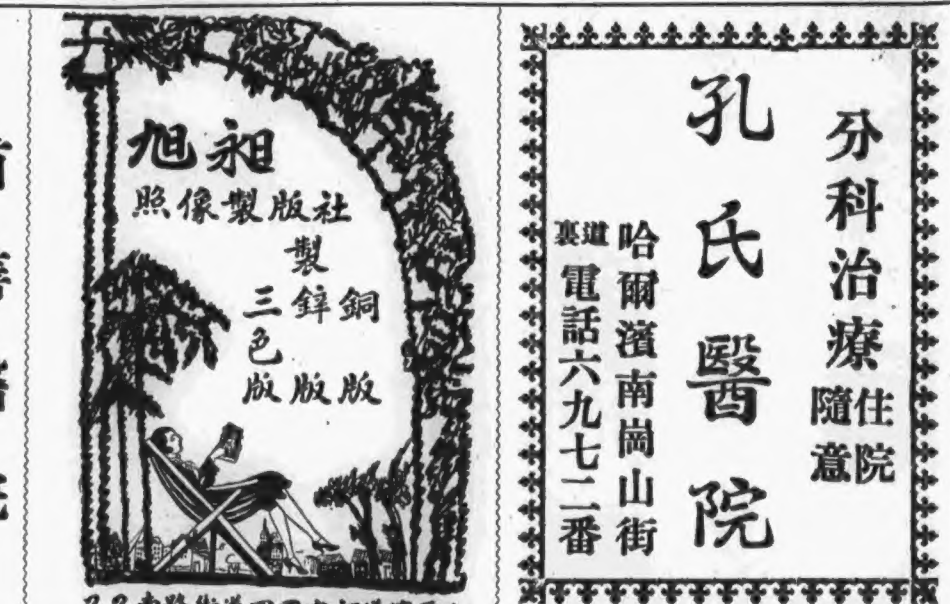 分科治療
住院
隨意
孔氏醫院
哈爾濱南崗山街
道裏
電話六九七二番
旭昶
照像製版社
製
銅版
鋅版
三色版